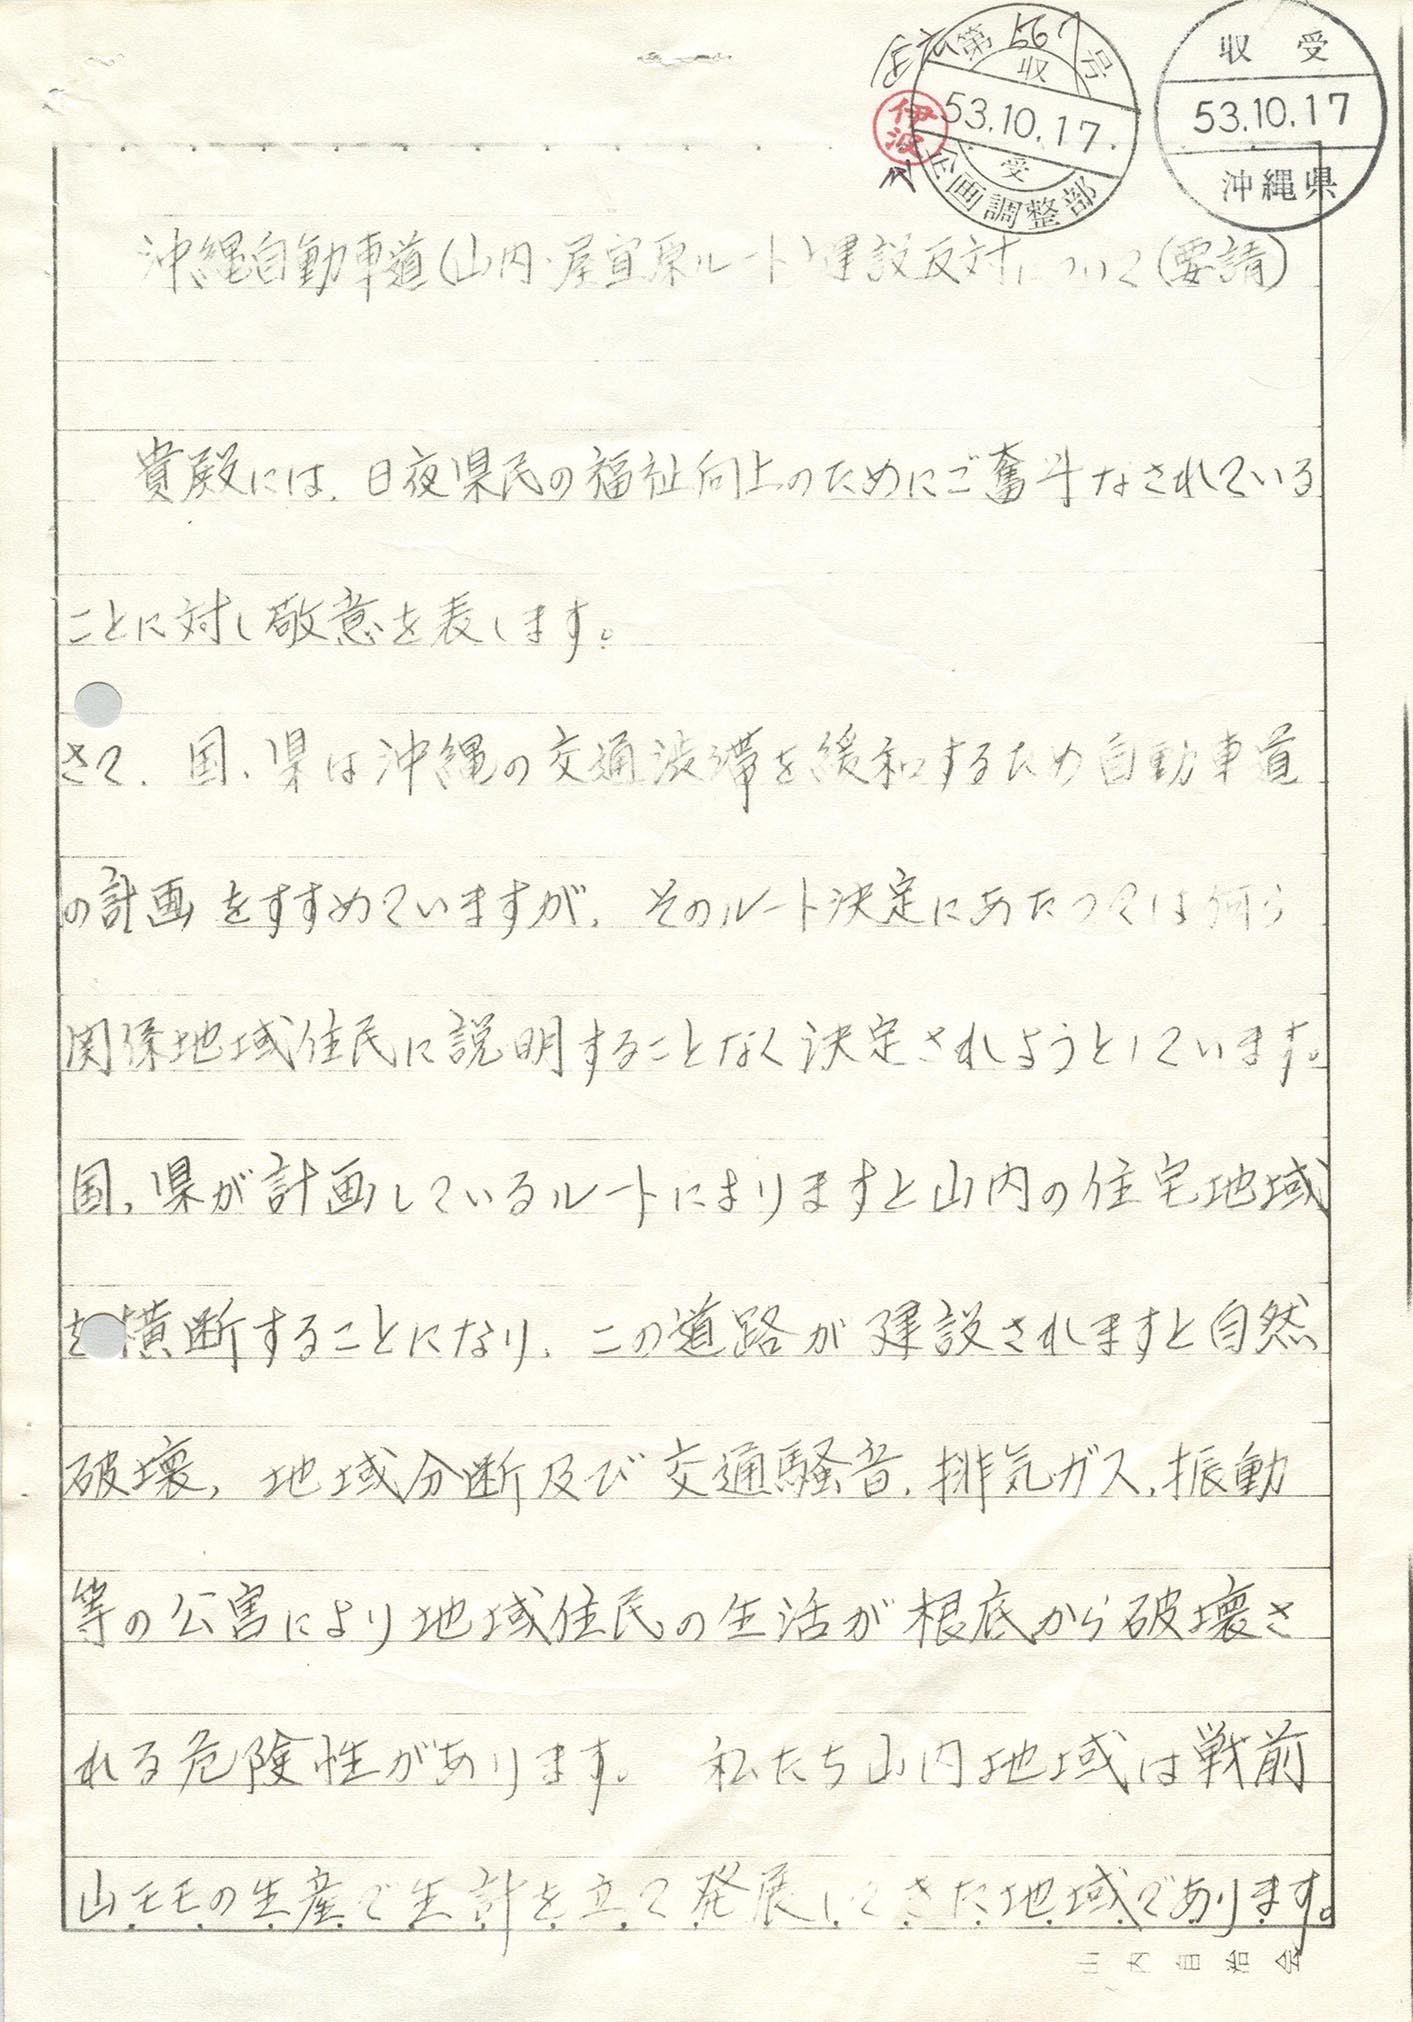 企公第567号
収
53.10.17.
受
企画調整部
伊波
収受
53.10.17
沖縄県
沖縄自動車道(山内・屋宜原ルート)建設反対について(要請)
貴殿には、日夜県民の福祉向上のためにご奮斗なされている
ことに対し敬意を表します。
さて、国、県は沖縄の交通渋滞を緩和するため自動車道
の計画をすすめていますが、そのルート決定にあたっては何ら
関係地域住民に説明することなく決定されようとしています。
国、県が計画しているルートによりますと山内の住宅地域
を横断することになり、この道路が建設されますと自然
破壊、地域分断及び交通騒音、排気ガス、振動
等の公害により地域住民の生活が根底から破壊さ
れる危険性があります。 私たち山内地域は戦前
山モモの生産で生計を立て発展してきた地域であります。
山内自治会